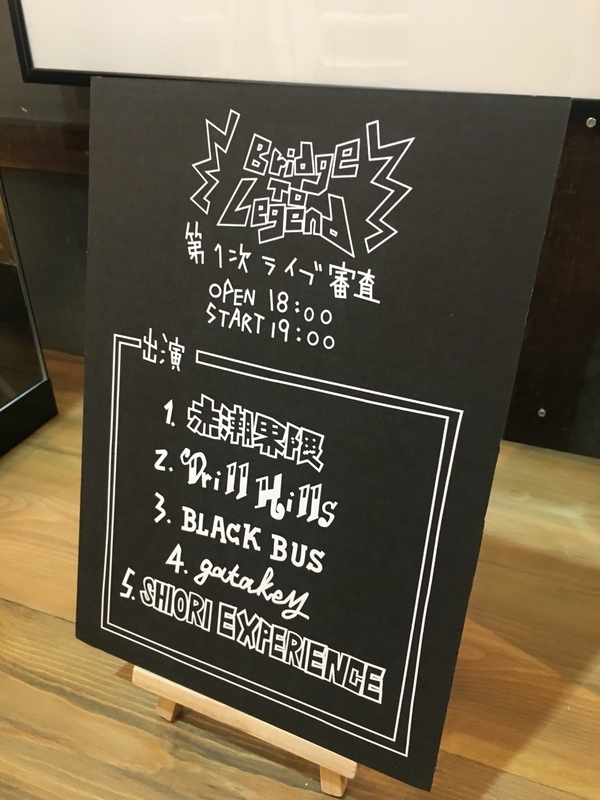 Bridge
To
Legend
第1次 ライブ審査
OPEN 18:00
START 19:00
出演
1. 赤潮界隈
2. Drill Hills
3. BLACK BUS
4. gatakey
5. SHIORI EXPERIENCE